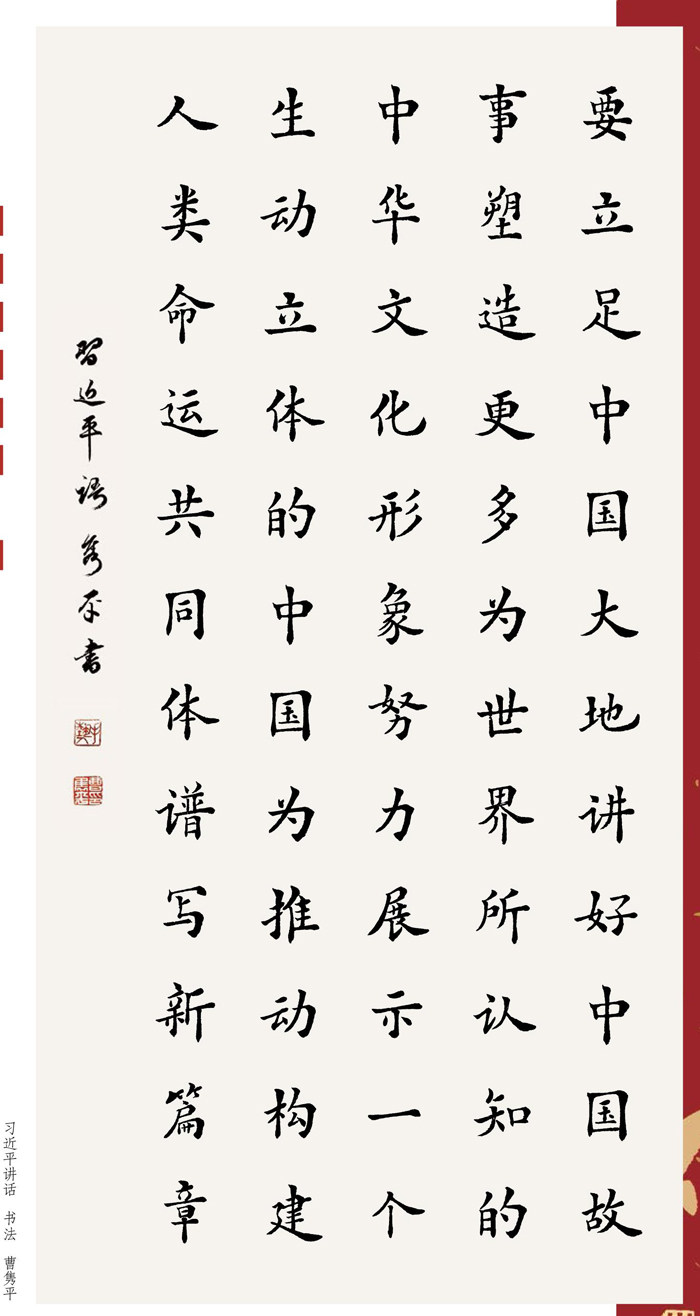 要立足中国大地讲好中国故
事塑造更多为世界所认知的
中华文化形象努力展示一个
生动立体的中国为推动构建
人类命运共同体谱写新篇章
習近平语 隽平书
习近平讲话 书法 曹隽平